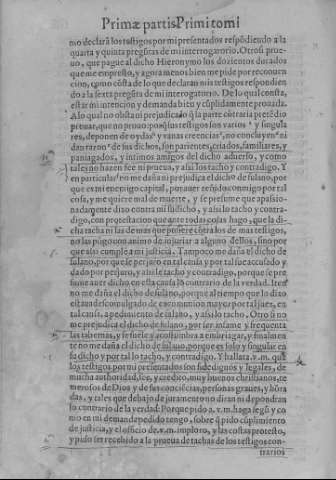 Primæ partis Primi tomi
mo declarã los testigos por mi presentados respõdiendo a la
quarta y quinta pregũtas de mi interrogatorio. Otrosi prue-
uo, que pague al dicho Hieronymo los dozientos ducados
que me empresto, y agora menos bien me pide por reconuen
cion, como cõsta de lo que declaran mis testigos respondien
do a la sexta pregũta de mi interrogatorio. De lo qual consta,
estar mi intencion y demanda bien y cũplidamente prouada.
A lo qual no obsta ni prejudica lo q̃ la parte cõtraria pretẽdio
prouar, que no prouo: porq̃ sus testigos son varios y singula
res, deponen de oydas y vanas creencias, no concluyen ni
dan razon de sus dichos, son parientes, criados, familiares, y
paniagados, y intimos amigos del dicho aduerso, y como
tales no hazen fee ni prueua, y assi los tacho y contradigo. Y
en particular no me daña ni prejudica el dicho de fulano, por
que es mi enemigo capital, por auer reñido conmigo por tal
cosa, y me quiere mal de muerte, y se presume que apassio-
nadamente dixo contra mi su dicho, y assi lo tacho y contra-
digo, con protestacion que ante todas cosas hago, que la di-
cha tacha ni las de mas que pusiere cõtra los de mas testigos,
no las põgo con animo de injuriar a alguno dellos, sino por
que assi cumple a mi justicia. Tampoco me daña el dicho de
fulano, por que se perjuro en tal causa y por tal fue acusado y
dado por perjuro, y assi le tacho y contradigo, porque se pre
sume auer dicho en esta causa lo contrario de la verdad. Iten
no me daña el dicho de fulano, porque al tiempo que lo dixo
estaua descomulgado de excomunion mayor por tal juez, en
tal causa, a pedimiento de fulano, y assi lo tacho. Otro si no
me prejudica el dicho de fulano, por ser infame y frequenta
las tabernas, y se suele y acostumbra emburiagar, y finalmen
te no me daña el dicho de fulano, porque es solo y singular en
su dicho y por tal lo tacho, y contradigo. Y hallara v.m. que
los testigos por mi presentados son fidedignos y legales, de
mucha authoridad, fee, y credito, muy buenos christianos, te
merosos de Dios y de sus conciẽcias, personas graues, y hõra
das, y tales que debajo de juramento no diran ni depondran
lo contrario de la verdad: Porque pido a.v.m. haga segũ y co
mo en mi demanda pedido tengo, sobre q̃ pido cũplimiento
de justicia, y el officio de .v.m. imploro, y las costas protesto,
y pido ser recebido a la prueua de tachas de los testigos con-
trarios